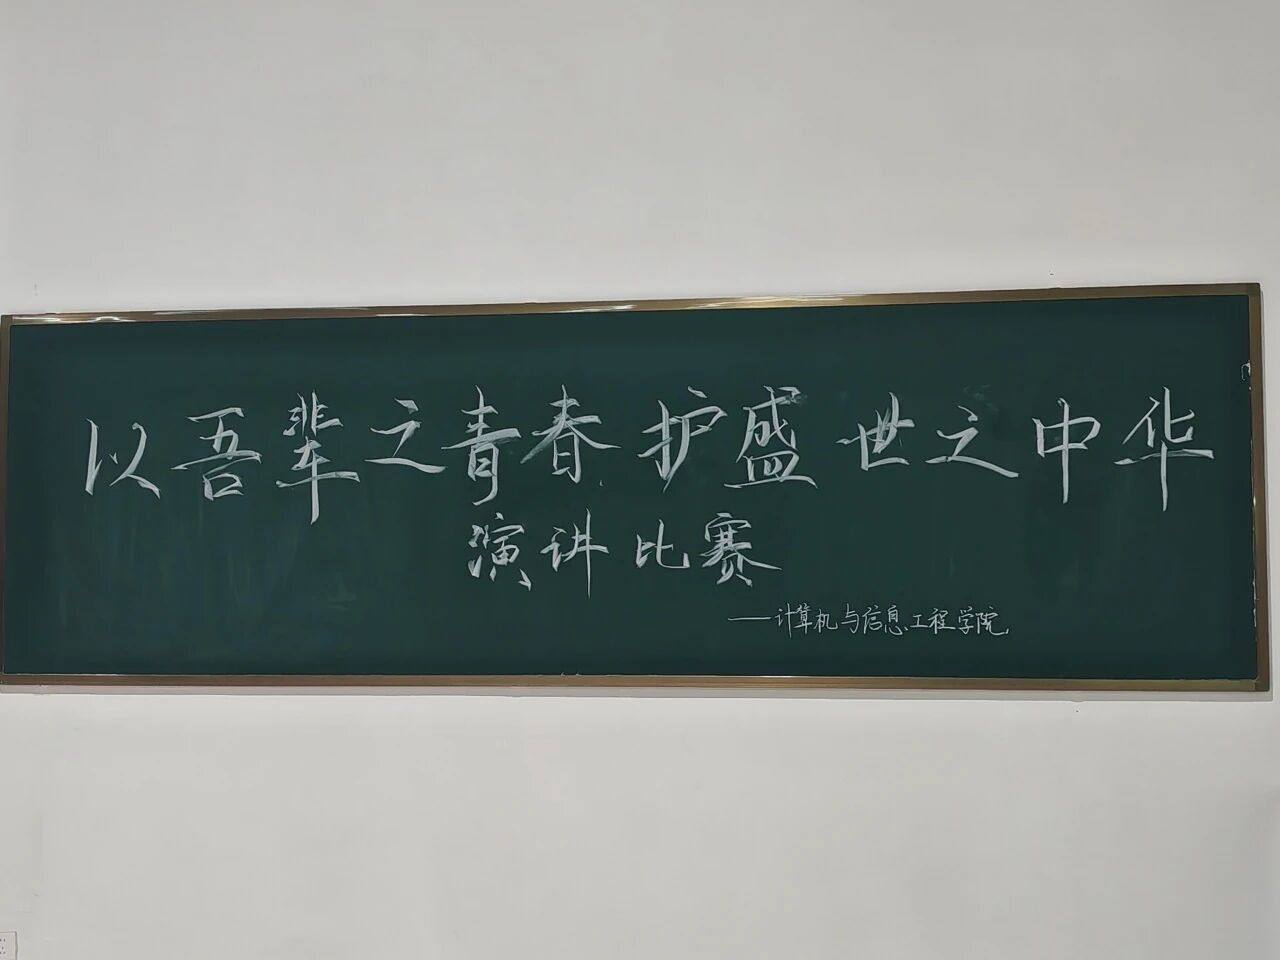 以吾辈之青春护盛世之中华
演讲比赛
——计算机与信息工程学院